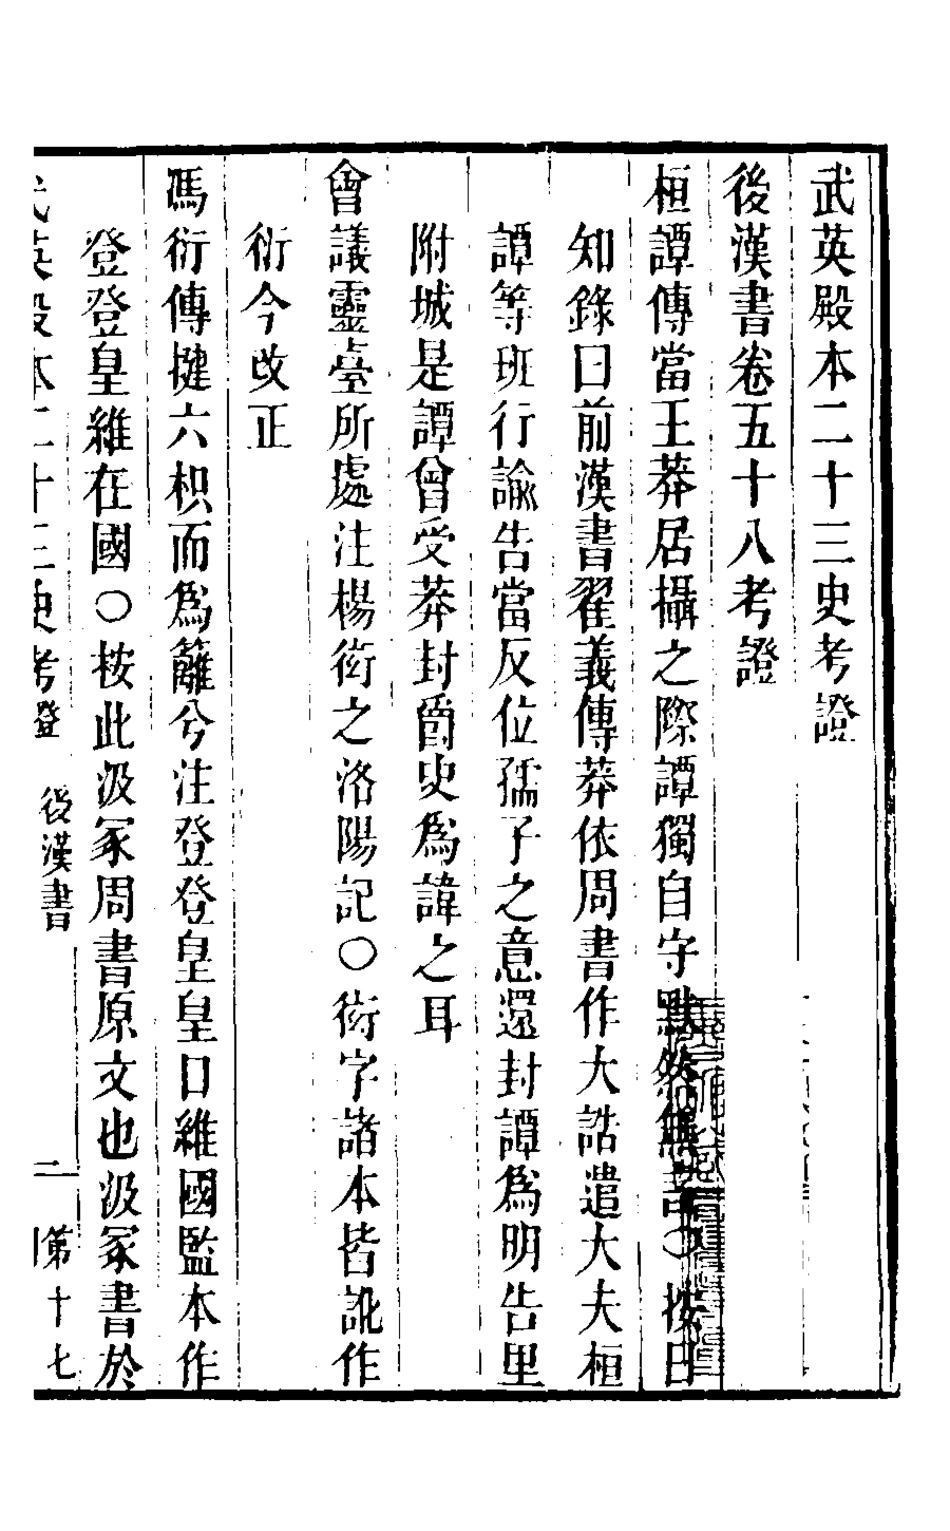 武英殿本二十三史考證
後漢書卷五十八考證
桓譚傳當王莽居攝之際譚獨自守默然無言○按日
知錄曰前漢書翟義傳莽依周書作大誥遣大夫桓
譚等班行諭告當反位孺子之意還封譚爲明告里
附城是譚曾受莽封爵史爲諱之耳
會議靈臺所處注楊衒之洛陽記○衒字諸本皆訛作
衍今改正
馮衍傳揵六枳而爲籬兮注登登皇皇口維國監本作
登登皇維在國○按此汲冢周書原文也汲冢書於
武英殿本二十三史考證 後漢書 二 第十七